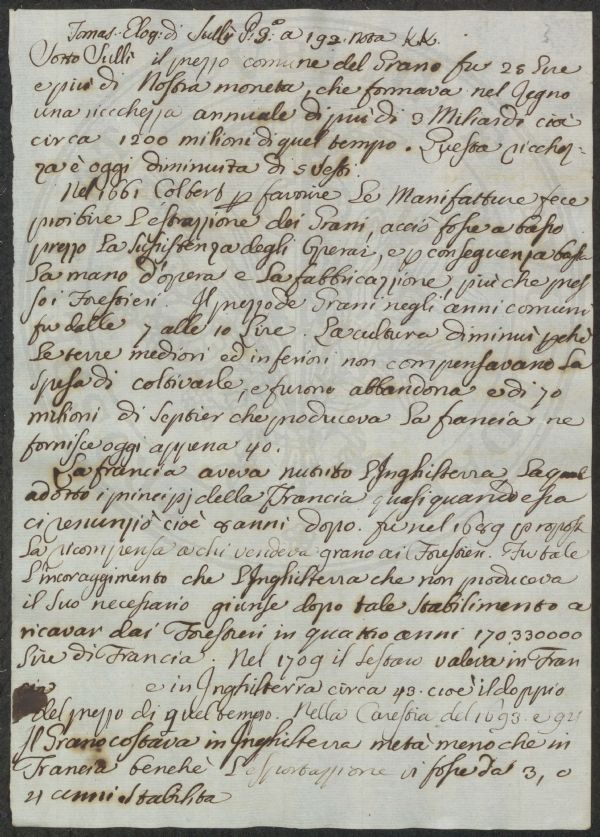 Tomas. Elog. di Sulli P. 3.º a 192. nota KK.
Sotto Sulli il prezzo comune del Grano fu 25 Lire
e più di Nostra moneta, che formava nel Regno
una ricchezza annuale di più di 3 Miliardi cioè
circa 1200 milioni di quel tempo. Questa ricchez-
za è oggi diminuita di
Nel 1661 Colbert p favorire Le Manifatture fece
proibire L'estrazzione dei Grani, acciò fosse a basso
prezzo La Sussistenza degli Operai, e p conseguenza bassa
La mano d'opera e La fabbricazzione, più che pres
so i Forestieri. Il prezzo de Grani negli anni comuni
fu dalle 7 alle 10 Lire. La cultura diminuì pchè
Le terre mediori ed inferiori non compensavano La
spesa di coltivarle, e furono abbandona e di 70
milioni di Septier che produceva La francia ne
fornisce oggi appena 40.
La francia aveva nutrito L'Inghilterra La qual
adottò i principj della Francia quasi quando essa
ci renunziò cioè anni dopo. fu nel 1689 proposta
La ricompensa a chi vendeva grano ai Forestieri. Fu tale
L'incoraggimento che L'Inghilterra che non produceva
il Suo necessario giunse dopo tale Stabilimento a
ricavar dai Forestieri in quattro anni 170330000
Lire di Francia. Nel 1709 il Sestau valeva in Fran
cia e in Inghilterra circa 43. cioè il doppio
del prezzo di quel tempo. Nella Carestia del 1693. e 94
Il Grano costava in Inghilterra metà meno che in
Francia benche L'esportazzione vi fosse da 3, o
4 anni Stabilita